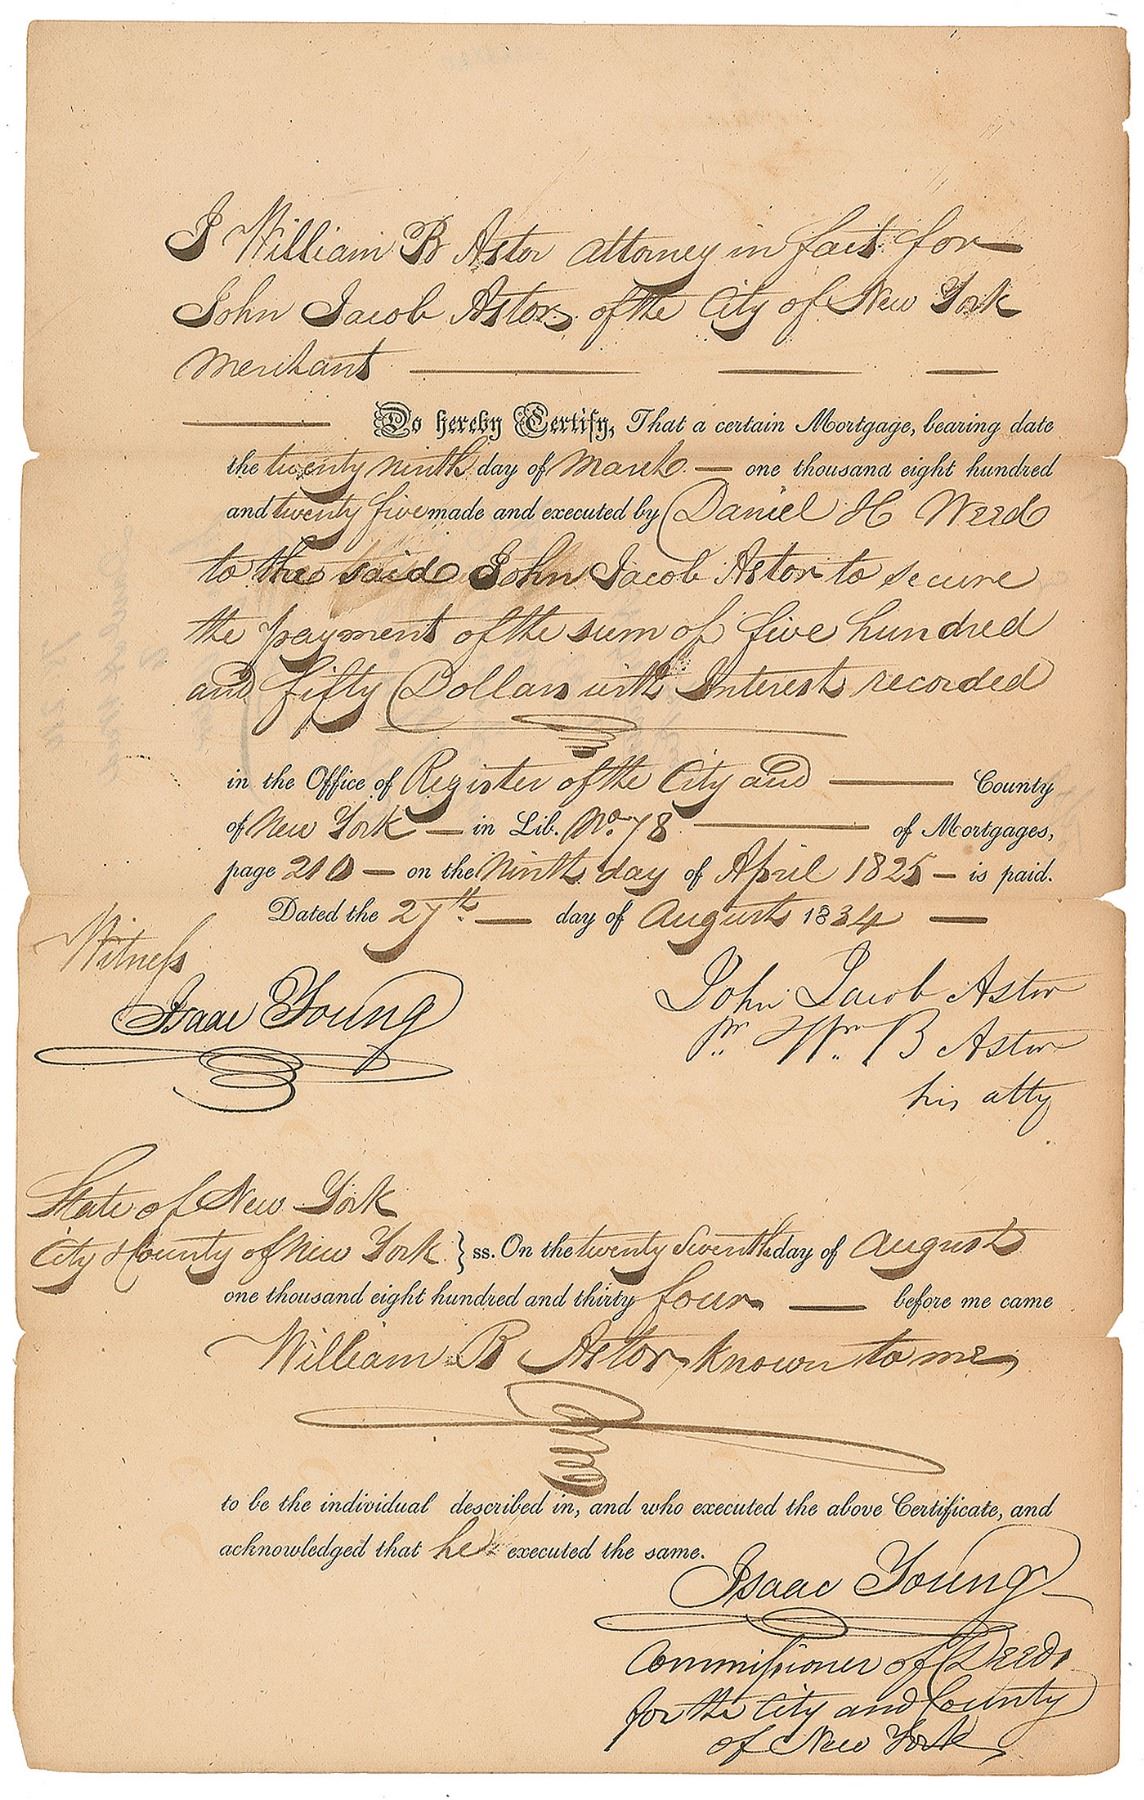 I William B Astor attorney in fact for
John Jacob Astor, of the City of New York
merchant
Do hereby Certify, That a certain Mortgage, bearing date
the twenty ninth day of March — one thousand eight hundred
and twenty five made and executed by Daniel H Weed
to the said John Jacob Astor to secure
the payment of the sum of five hundred
and fifty Dollars with Interest recorded
in the Office of Register of the City and — County
of New York — in Lib. No. 78 — of Mortgages,
page 210 — on the Ninth day of April 1825 — is paid.
Dated the 27th. — day of August 1834 —
Witness
Isaac Young
John Jacob Astor
pr. Wm. B Astor
his atty
State of New York
City & County of New York } ss. On the twenty seventh day of August
one thousand eight hundred and thirty four — before me came
William B Astor, known to me,
to be the individual described in, and who executed the above Certificate, and
acknowledged that he executed the same.
Isaac Young
Commissioner of Deeds
for the City and County
of New York